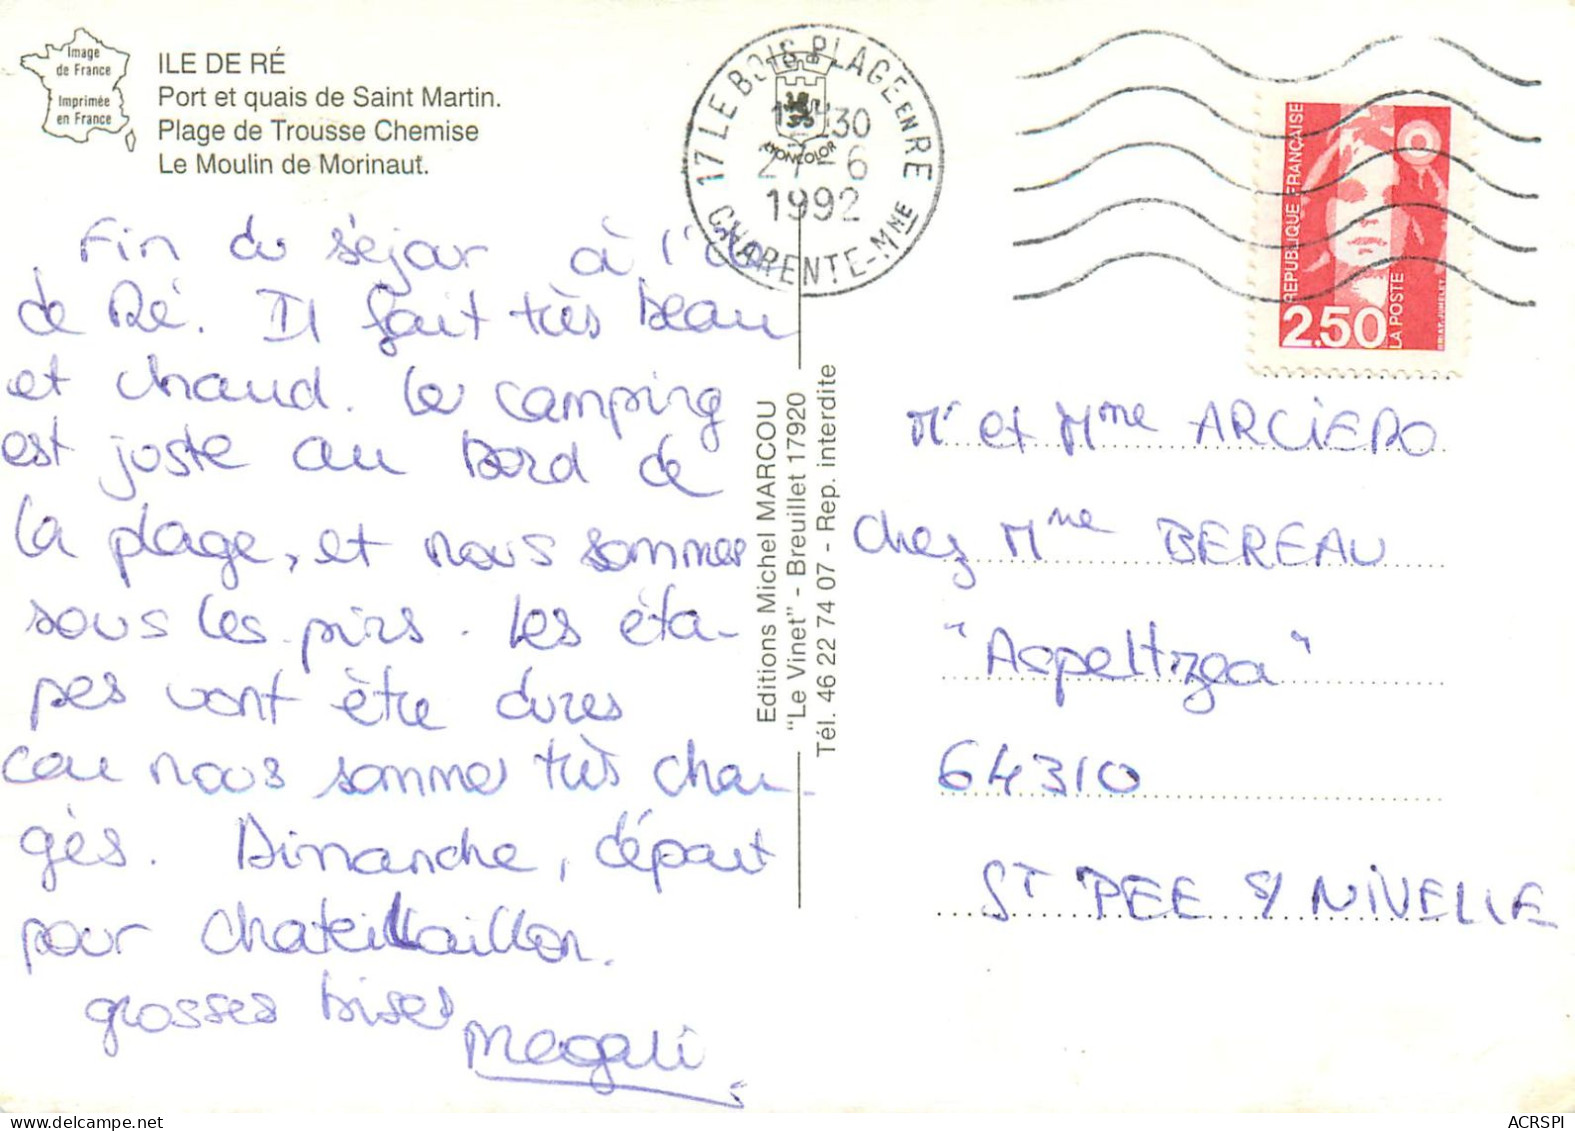 Image
de France
Imprimée
en France
ILE DE RÉ
Port et quais de Saint Martin.
Plage de Trousse Chemise
Le Moulin de Morinaut.
17 LE BOIS PLAGE EN RE
30
27-6
1992
CHARENTE-MNE
LYONCOLOR
REPUBLIQUE FRANÇAISE
2.50
LA POSTE
BRIAT-JUMELET
Fin du séjour à l'île
de Ré. Il fait très beau
et chaud. Le camping
est juste au bord de
la plage, et nous sommes
sous les pins. Les éta-
pes vont être dures
car nous sommes très char-
gés. Dimanche, départ
pour Chatellaillon.
grosses bises
Magali
Editions Michel MARCOU
"Le Vinet" - Breuillet 17920
Tél. 46 22 74 07 - Rep. interdite
Mr et Mme ARCIERO
chez Mme BEREAU
"Aspeltzea"
64310
ST PEE S/ NIVELLE
ACRSPI